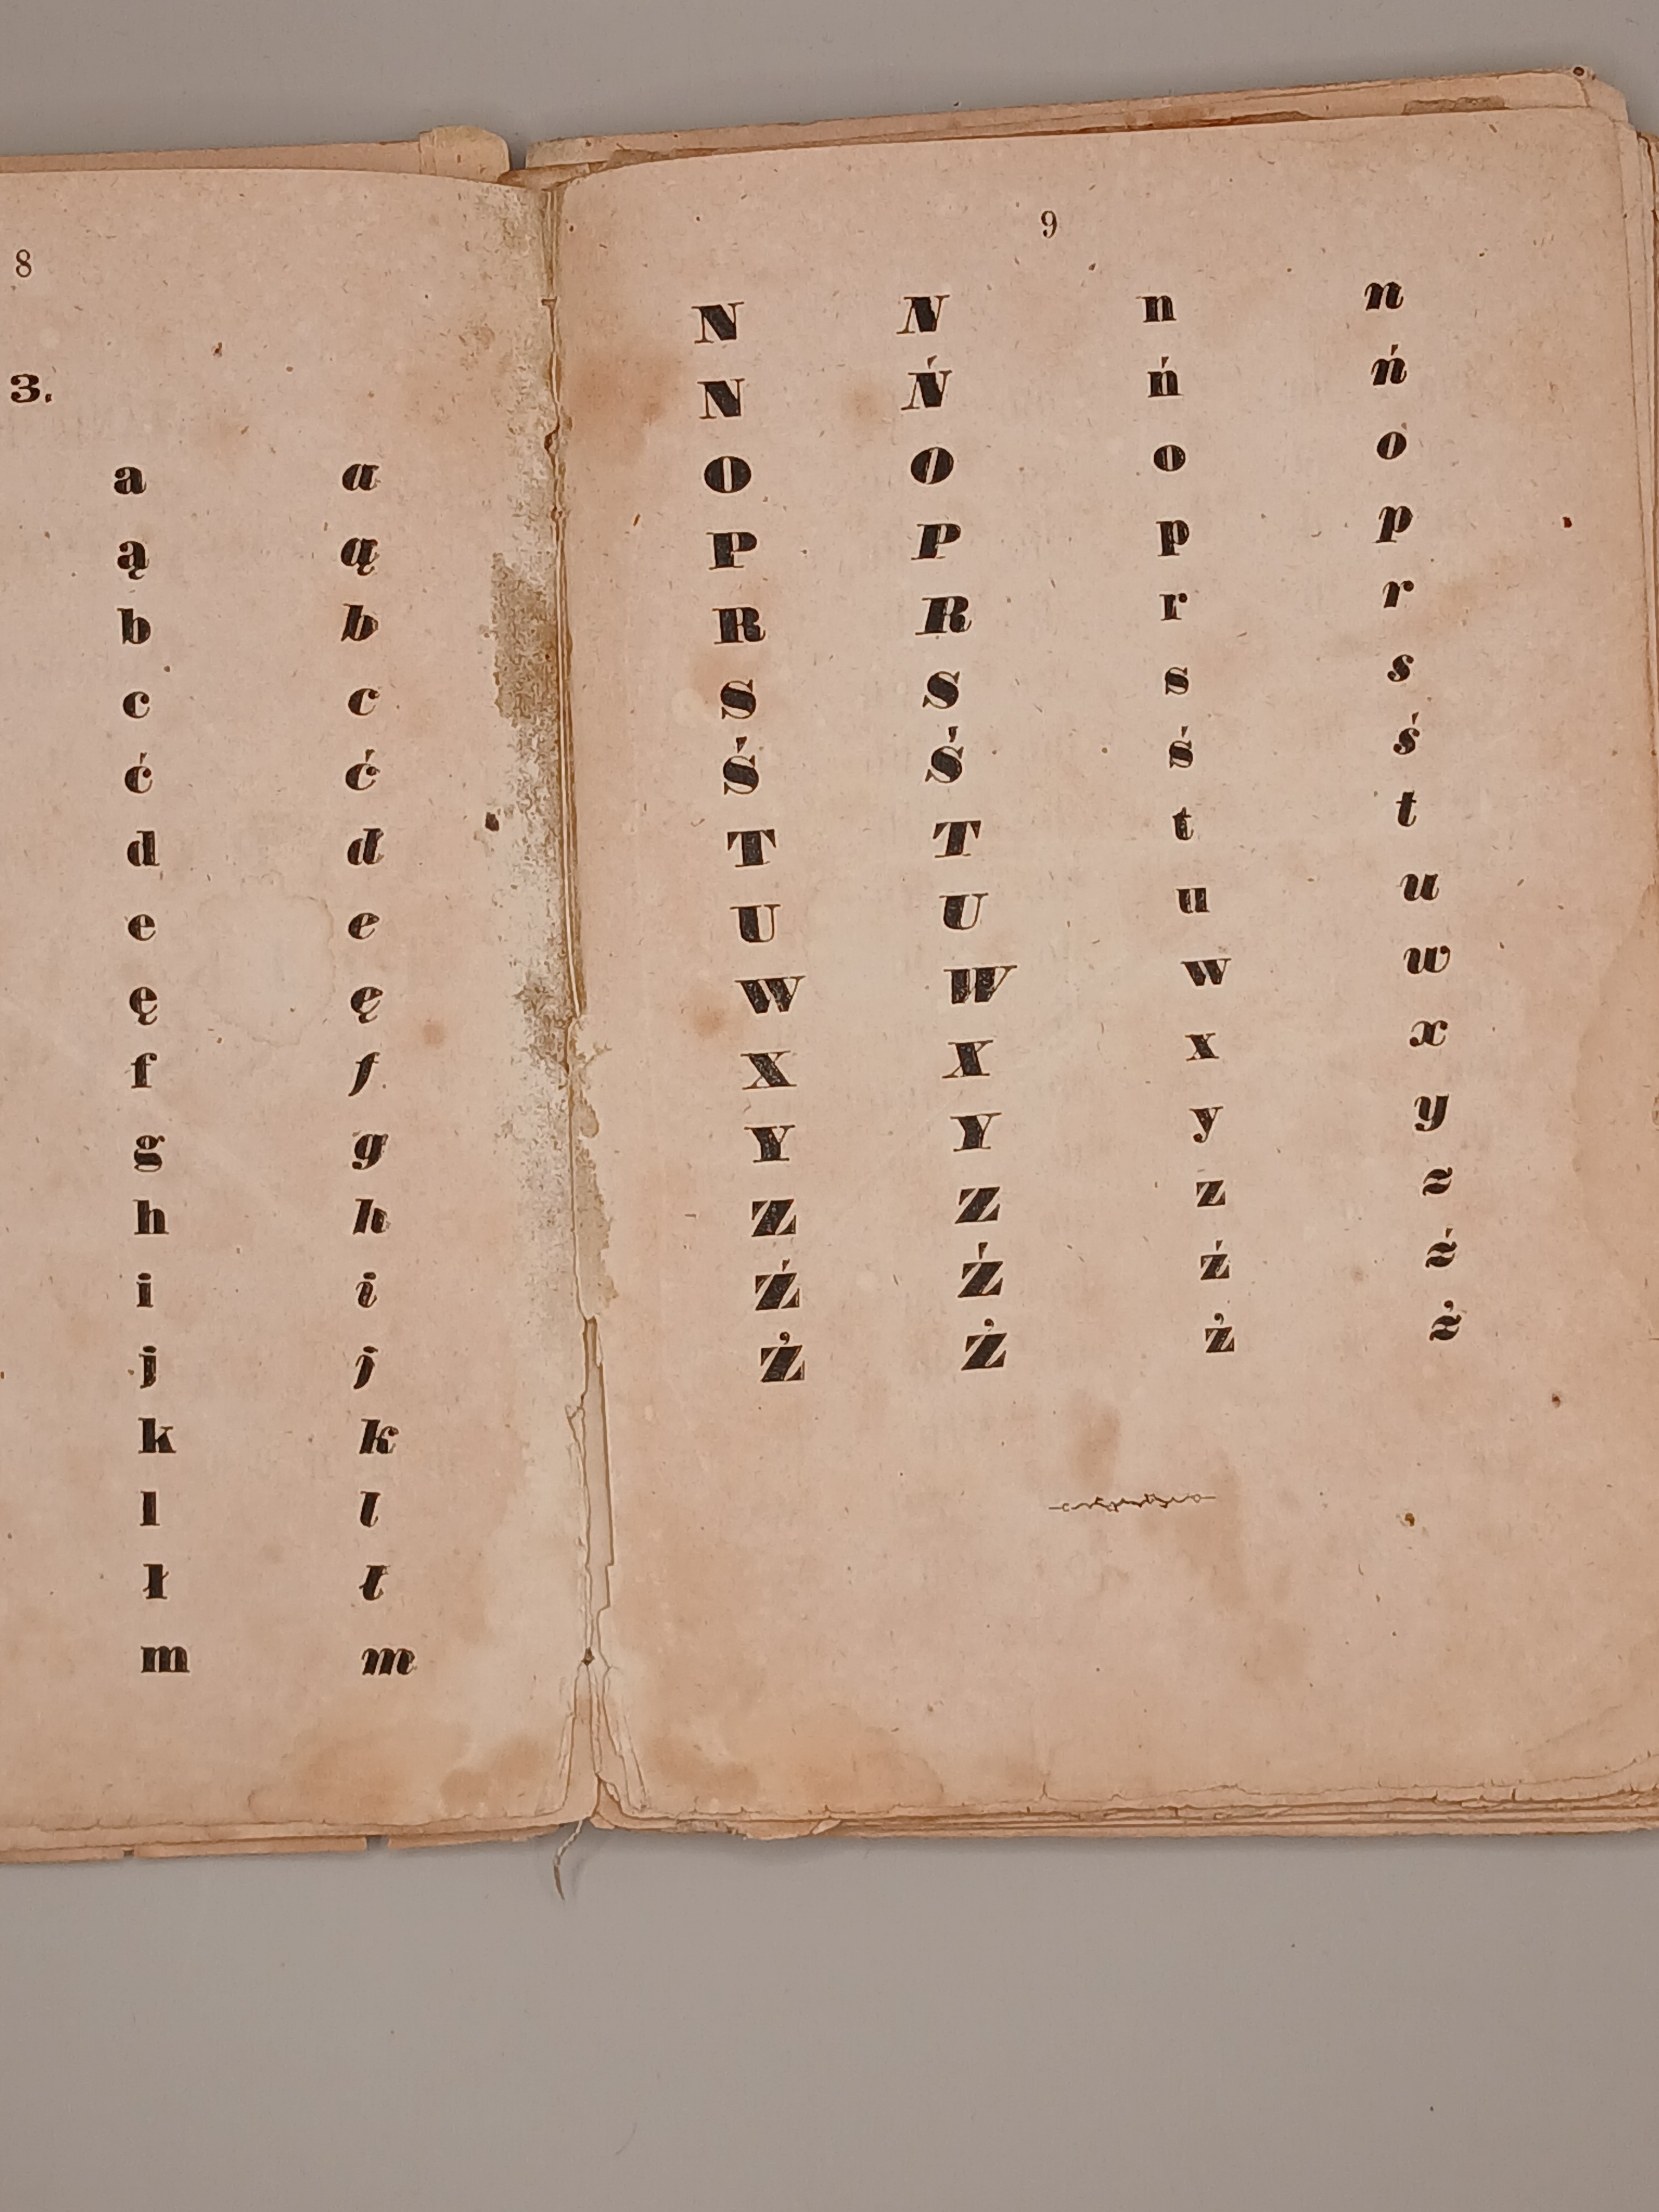 8
3.
a a
ą ą
b b
c c
ć ć
d d
e e
ę ę
f f
g g
h h
i i
j j
k k
l l
ł ł
m m
9
N N n n
N Ń ń ń
O O o o
P P p p
R R r r
S S s s
Ś Ś ś ś
T T t t
U U u u
W W w w
X X x x
Y Y y y
Z Z z z
Ź Ź ź ź
Ż Ż ż ż